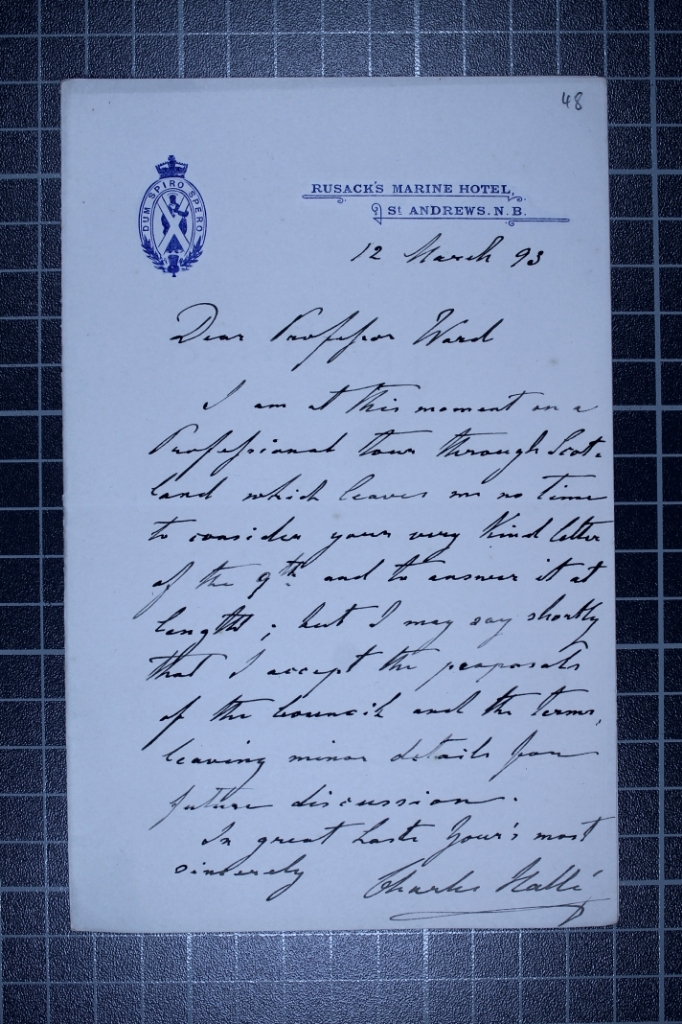 48
DUM SPIRO SPERO
RUSACK'S MARINE HOTEL,
St ANDREWS. N.B.
12 March 93
Dear Professor Ward
I am at this moment on a
Professional tour through Scot-
land which leaves me no time
to consider your very kind letter
of the 9th. and to answer it at
length; but I may say shortly
that I accept the proposals
of the Council and the terms,
leaving minor details for
future discussion.
In great haste Your's most
sincerely Charles Hallé